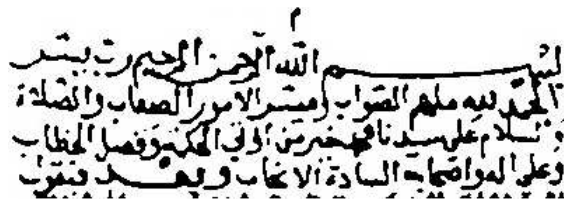 بسم الله الرحمن الرحيم رب يسر
الحمد لله ملهم الصواب وميسر الامور الصعاب والصلاة
والسلام على سيدنا محمد خير من اوتي الحكمة وفصل الخطاب
وعلى اله واصحابه السادة الانجاب وبعد فيقول